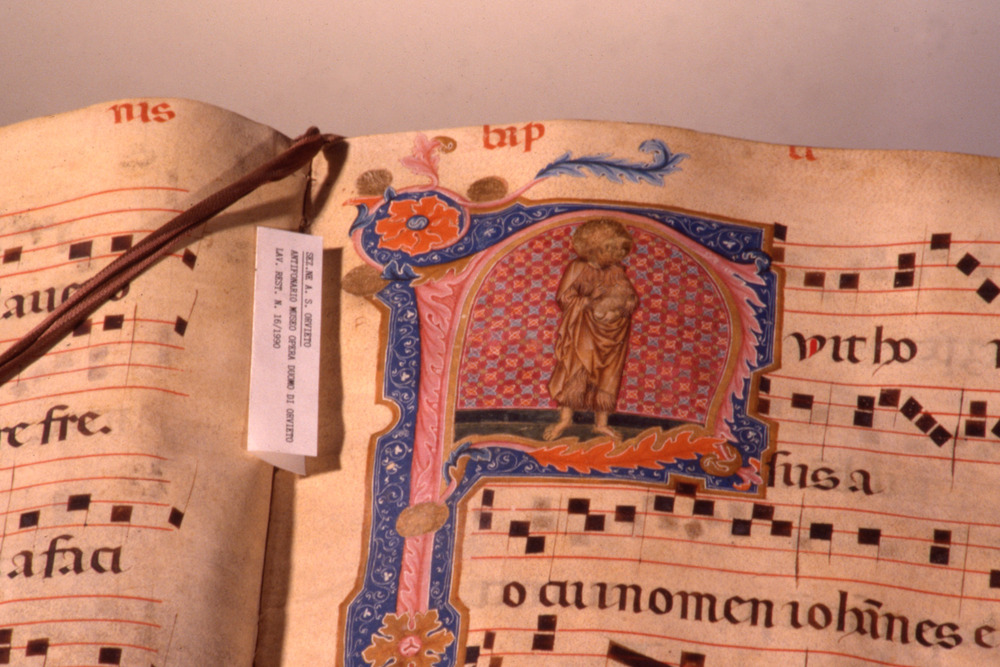 nis
bap
ti
SEZ.NE A. S. ORVIETO
ANTIFONARIO MUSEO OPERA DUOMO DI ORVIETO
LAV. REST. N. 16/1990
uit ho
re fre.
fus a
a faci
o cui nomen ioħnes e